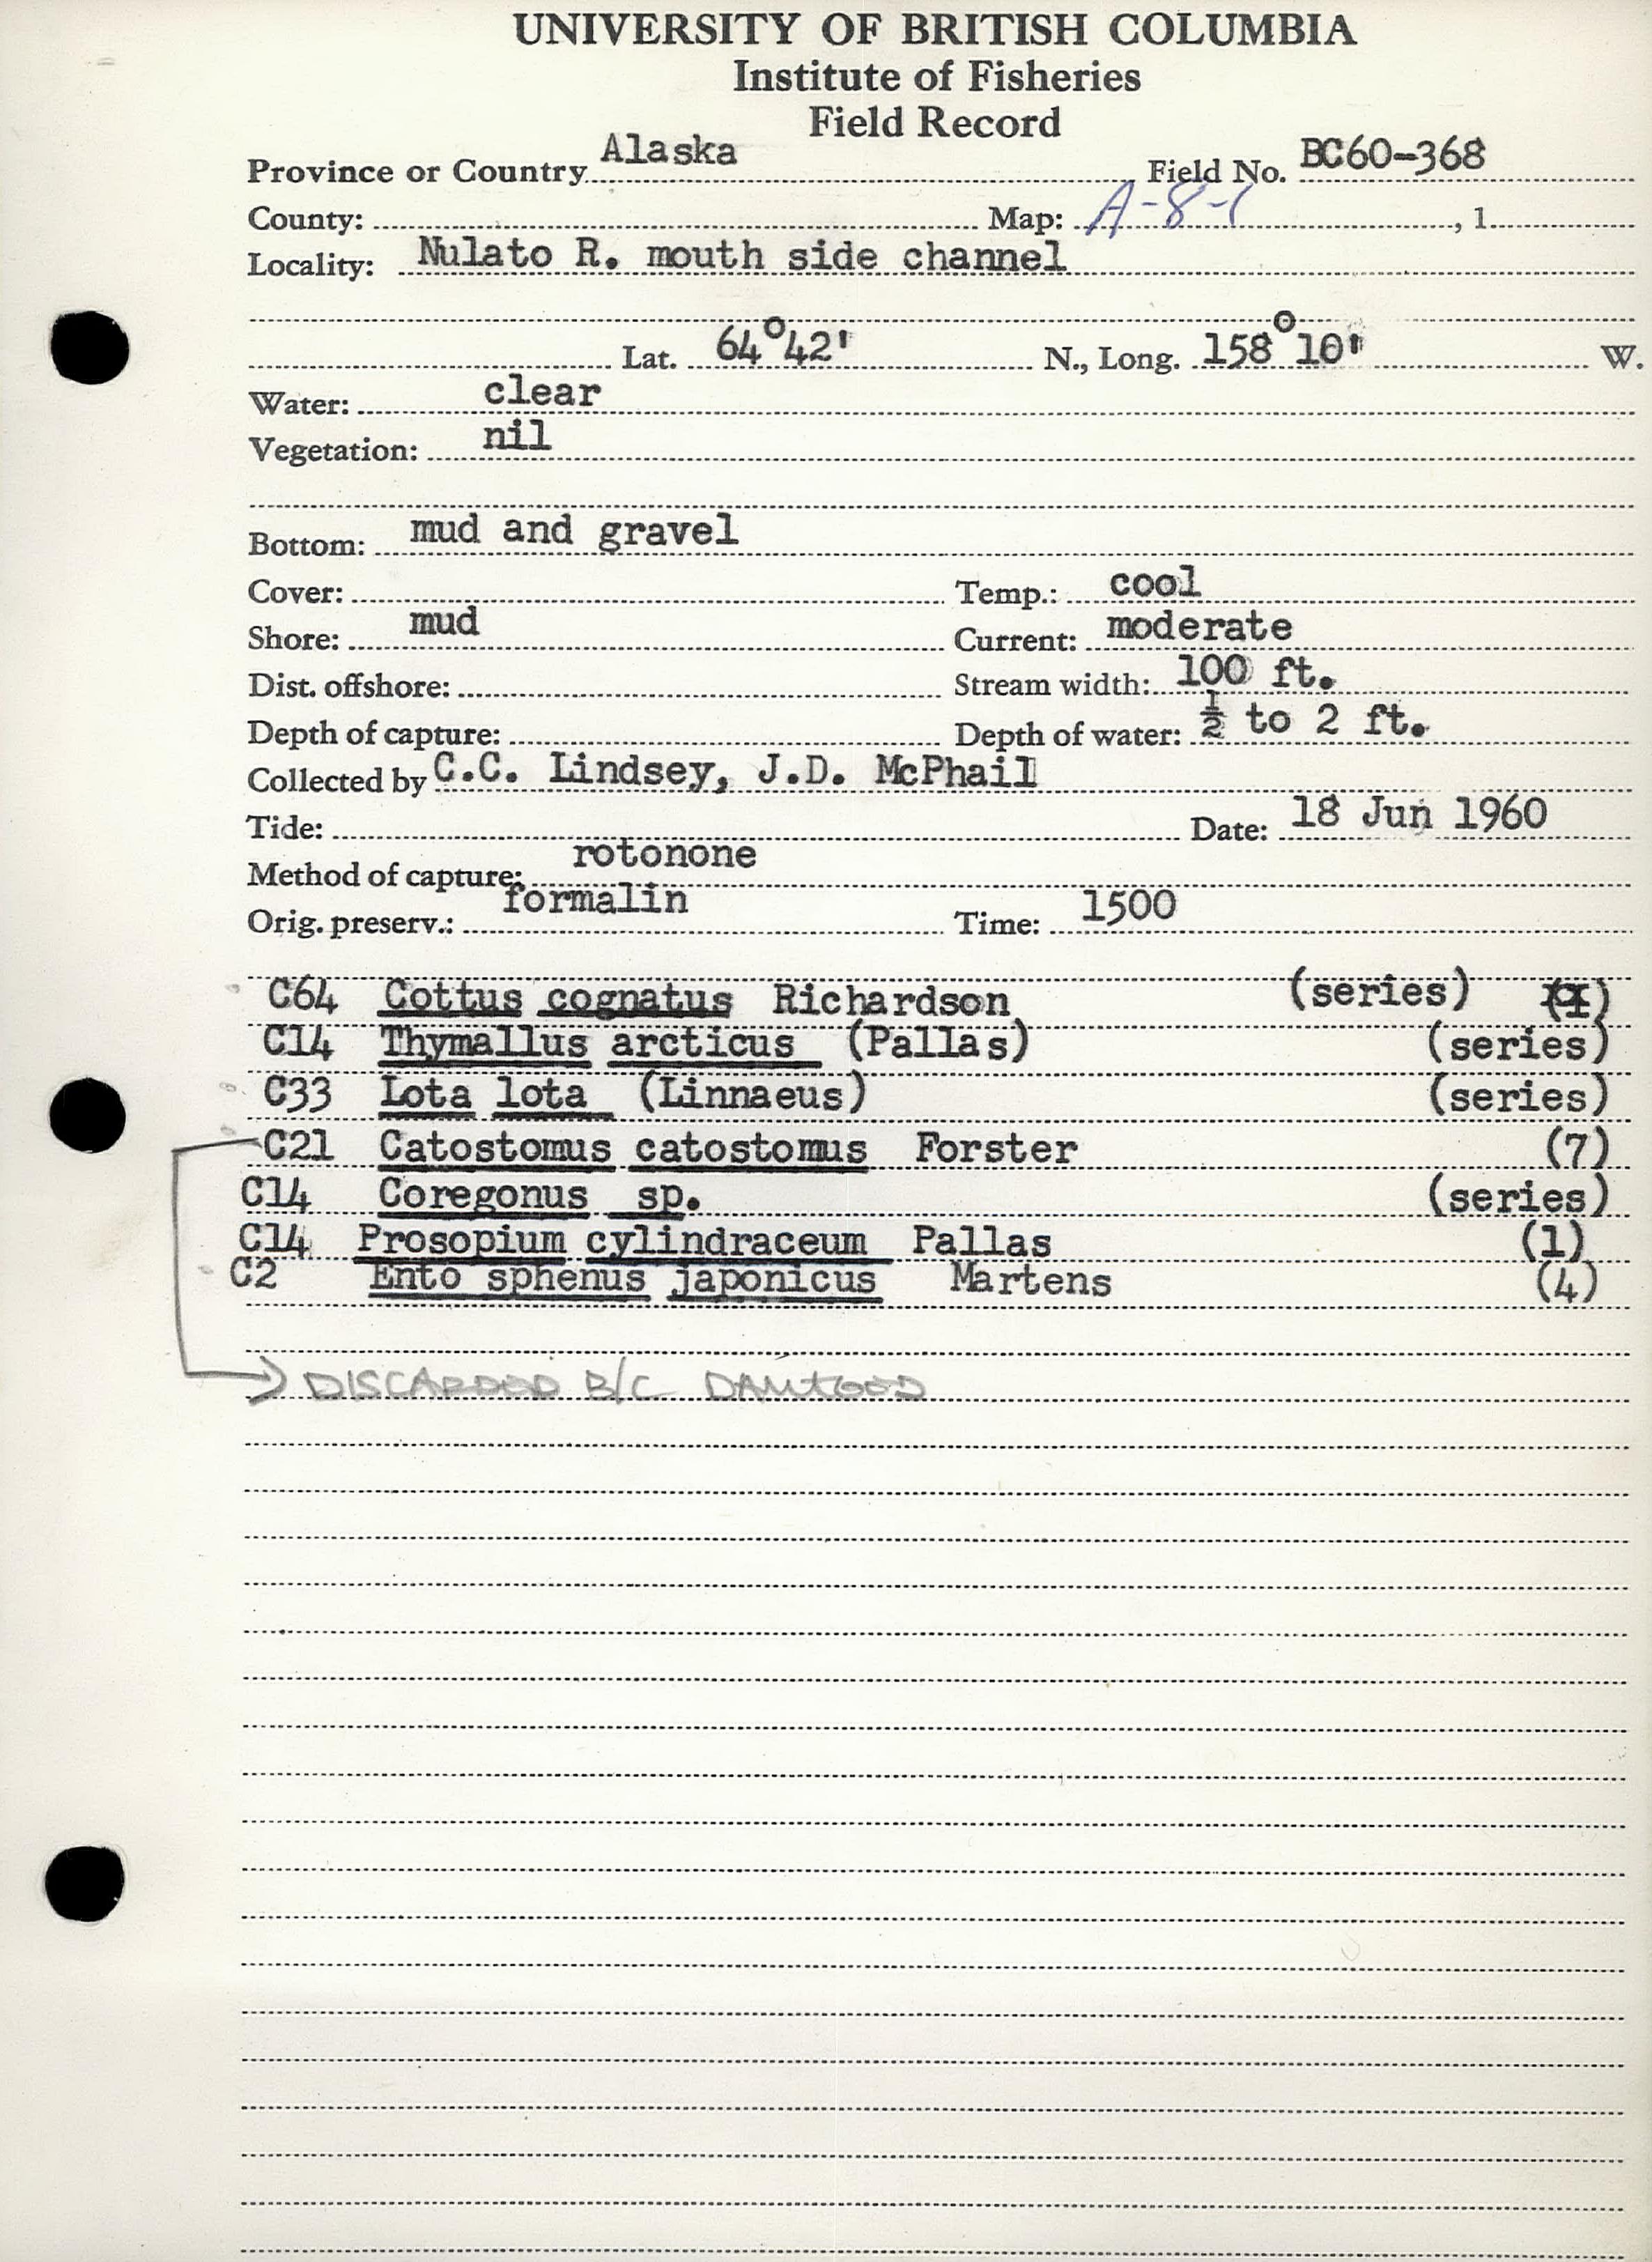 UNIVERSITY OF BRITISH COLUMBIA
Institute of Fisheries
Field Record
Province or Country Alaska Field No. BC60-368
County: Map: A-8-1 , 1
Locality: Nulato R. mouth side channel
Lat. 64°42' N., Long. 158°10' W.
Water: clear
Vegetation: nil
Bottom: mud and gravel
Cover: Temp.: cool
Shore: mud Current: moderate
Dist. offshore: Stream width: 100 ft.
Depth of capture: Depth of water: ½ to 2 ft.
Collected by C.C. Lindsey, J.D. McPhail
Tide: Date: 18 Jun 1960
Method of capture: rotonone
Orig. preserv.: formalin Time: 1500
C64 Cottus cognatus Richardson (series)
C14 Thymallus arcticus (Pallas) (series)
C33 Lota lota (Linnaeus) (series)
C21 Catostomus catostomus Forster (7)
C14 Coregonus sp. (series)
C14 Prosopium cylindraceum Pallas (1)
C2 Ento sphenus japonicus Martens (4)
DISCARDED B/C DAMAGED